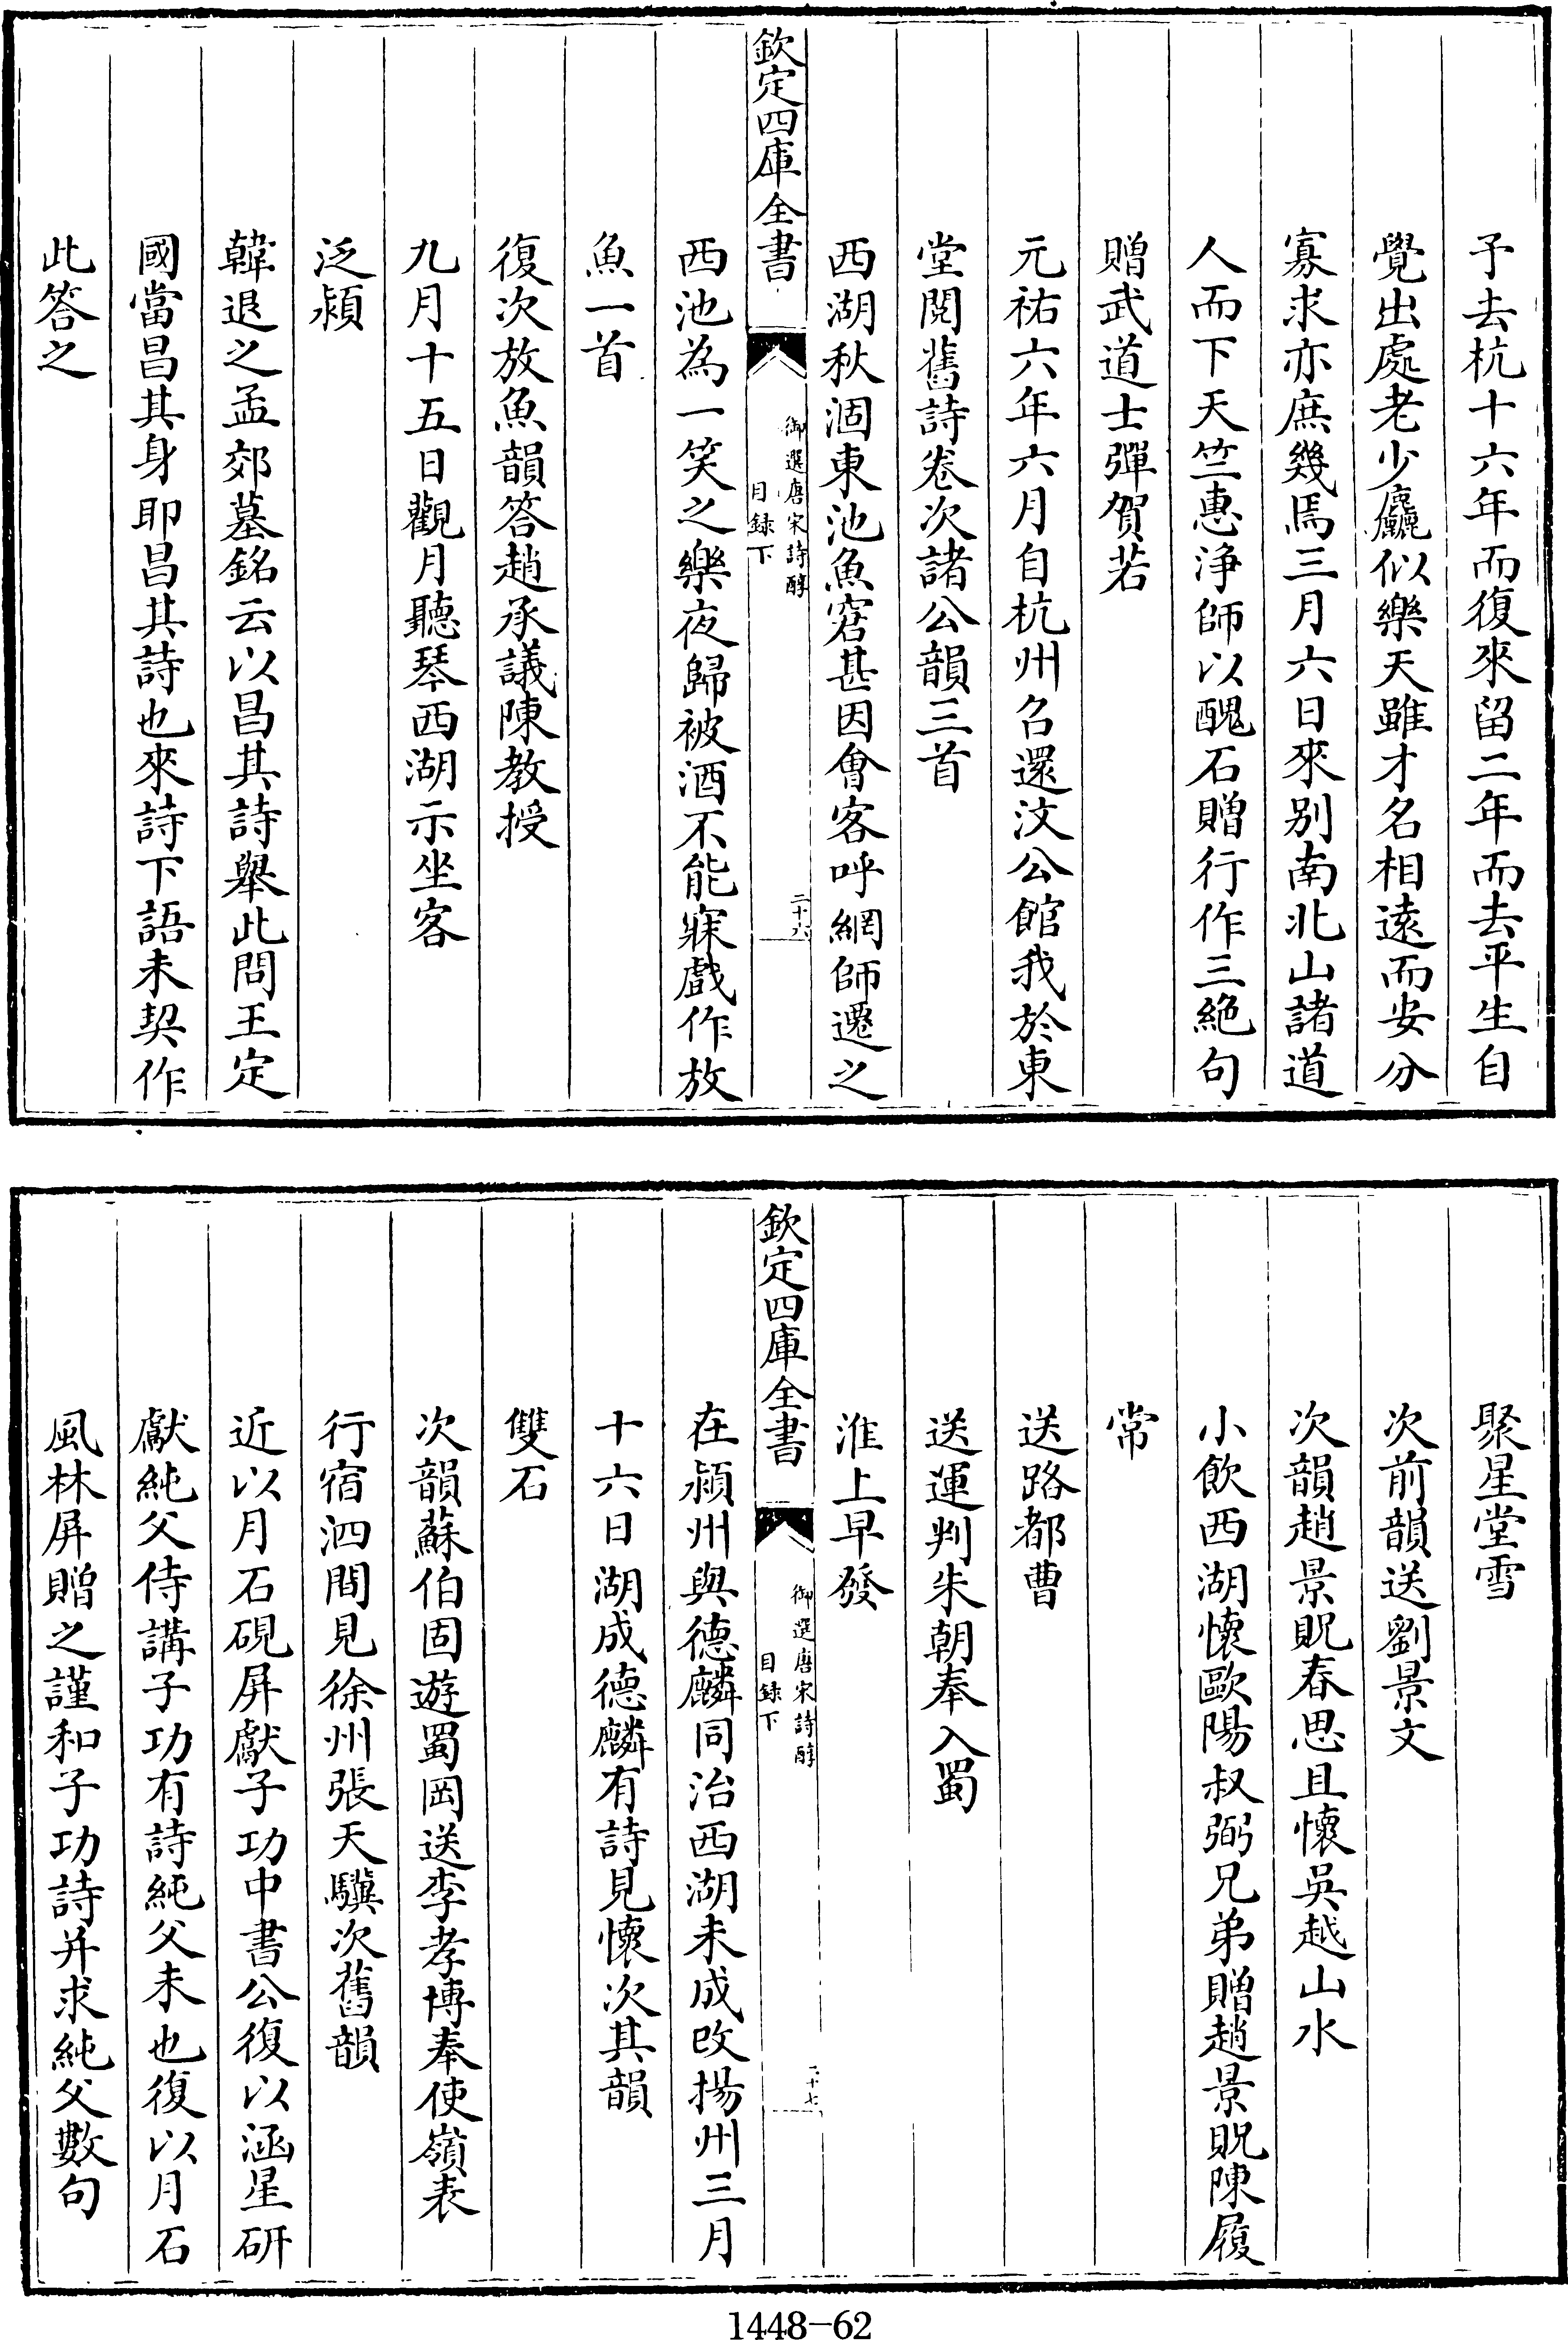 予去杭十六年而復來留二年而去平生自
覺出處老少麤似樂天雖才名相遠而安分
寡求亦庶幾焉三月六日來别南北山諸道
人而下天竺惠浄師以醜石贈行作三絶句
贈武道士彈賀若
元祐六年六月自杭州召還汶公館我於東
堂閲舊詩卷次諸公韻三首
西湖秋涸東池魚窘甚因會客呼網師遷之
欽定四庫全書
御選唐宋詩醇
目録下
二十六
西池為一笑之樂夜歸被酒不能寐戲作放
魚一首
復次放魚韻答趙承議陳教授
九月十五日觀月聽琴西湖示坐客
泛潁
韓退之孟郊墓銘云以昌其詩舉此問王定
國當昌其身耶昌其詩也來詩下語未契作
此答之
聚星堂雪
次前韻送劉景文
次韻趙景貺春思且懷吳越山水
小飲西湖懷歐陽叔弼兄弟贈趙景貺陳履
常
送路都曹
送運判朱朝奉入蜀
淮上早發
欽定四庫全書
御選唐宋詩醇
目録下
二十七
在潁州與德麟同治西湖未成改揚州三月
十六日湖成德麟有詩見懷次其韻
雙石
次韻蘇伯固遊蜀岡送李孝博奉使嶺表
行宿泗間見徐州張天驥次舊韻
近以月石硯屏獻子功中書公復以涵星研
獻純父侍講子功有詩純父未也復以月石
風林屏贈之謹和子功詩并求純父數句
1448-62